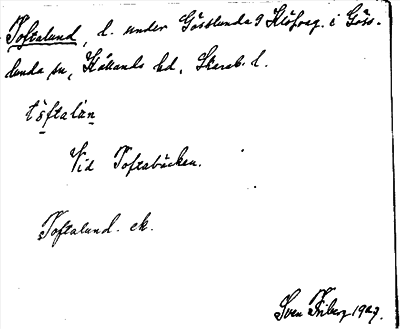 Toftalund, l. under Gösslunda 9 Klöfvag. i Göss-
lunda sn, Kållands hd, Skarab. l.
töftalùn
Vid Toftabäcken.
Toftalund. ek.
Sven Friberg 1927.